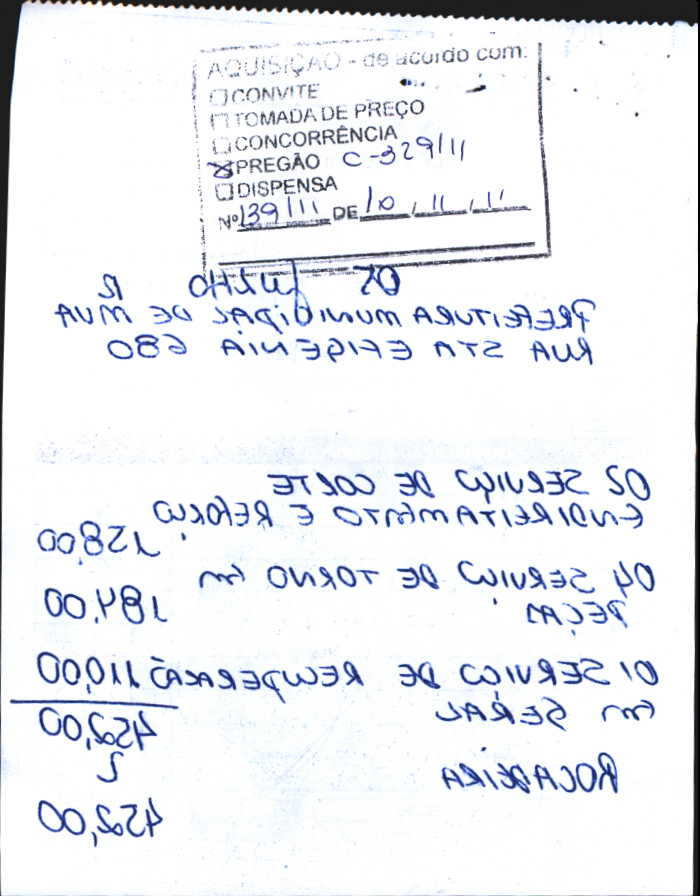 AQUISIÇÃO - de acordo com:
CONVITE
TOMADA DE PREÇO
CONCORRÊNCIA
PREGÃO C-329/11
DISPENSA
Nº 139/11 DE 10, 11, 11
JULHO 12
PREFEITURA MUNICIPAL DE MUA
RUA STA EFIGENIA 680
02 SERVIÇO DE CORTE
ENDIREITAMENTO E REFORÇO 158,00
04 SERVIÇO DE TORNO EM
PEÇAS 184,00
01 SERVIÇO DE RECUPERAÇÃO 110,00
EM GERAL 452,00
ROCADEIRA
452,00